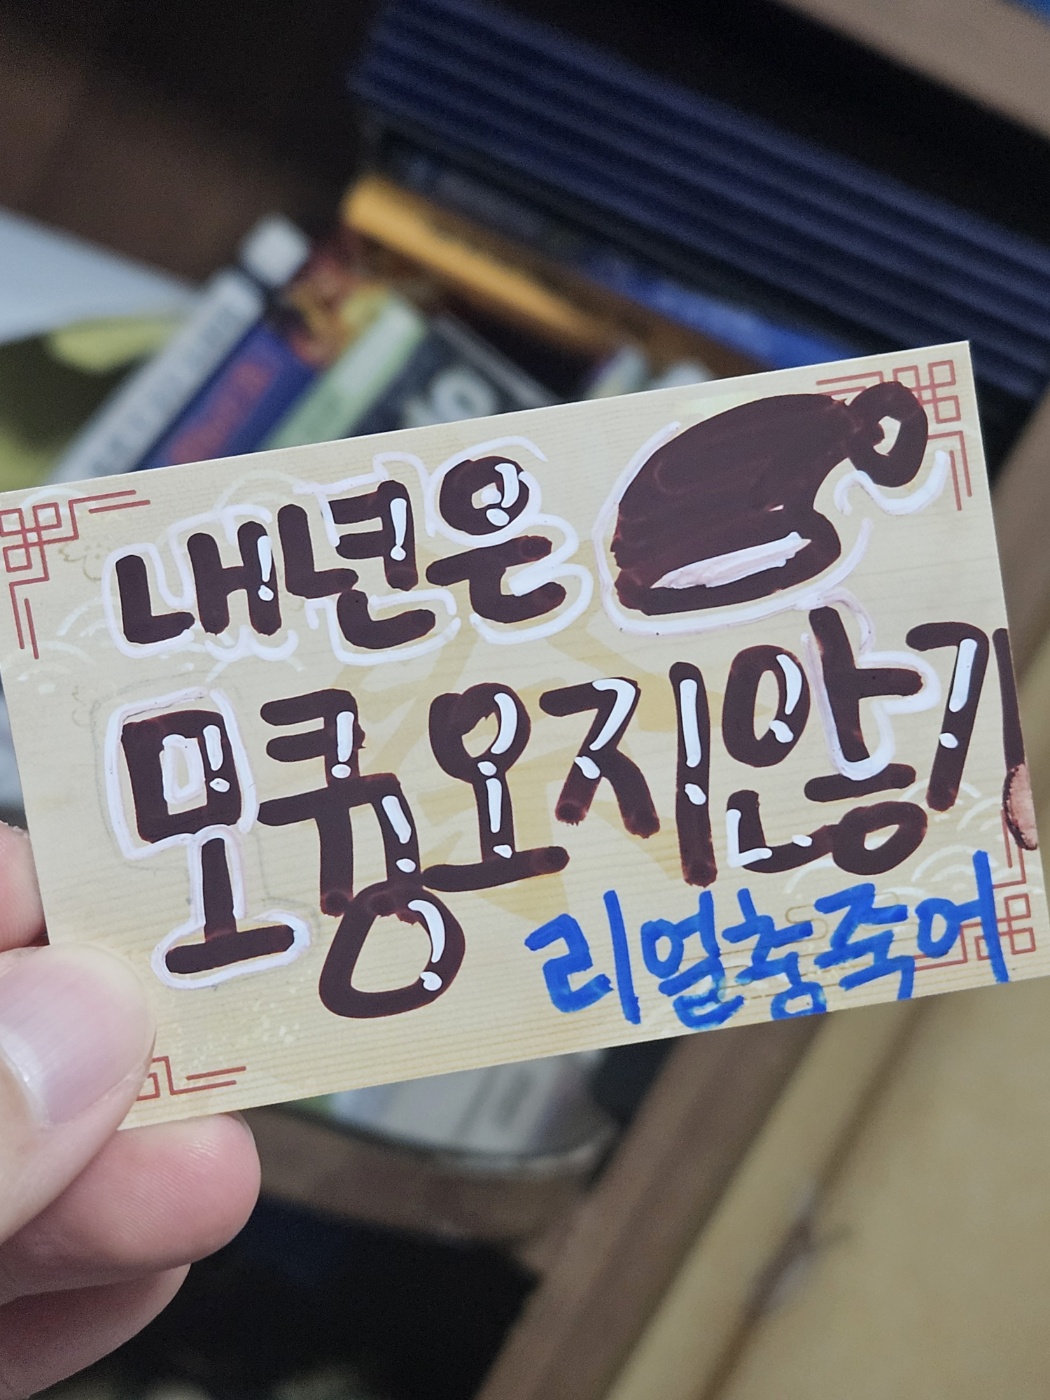 내년은
모쿵오지않기
리얼충죽어